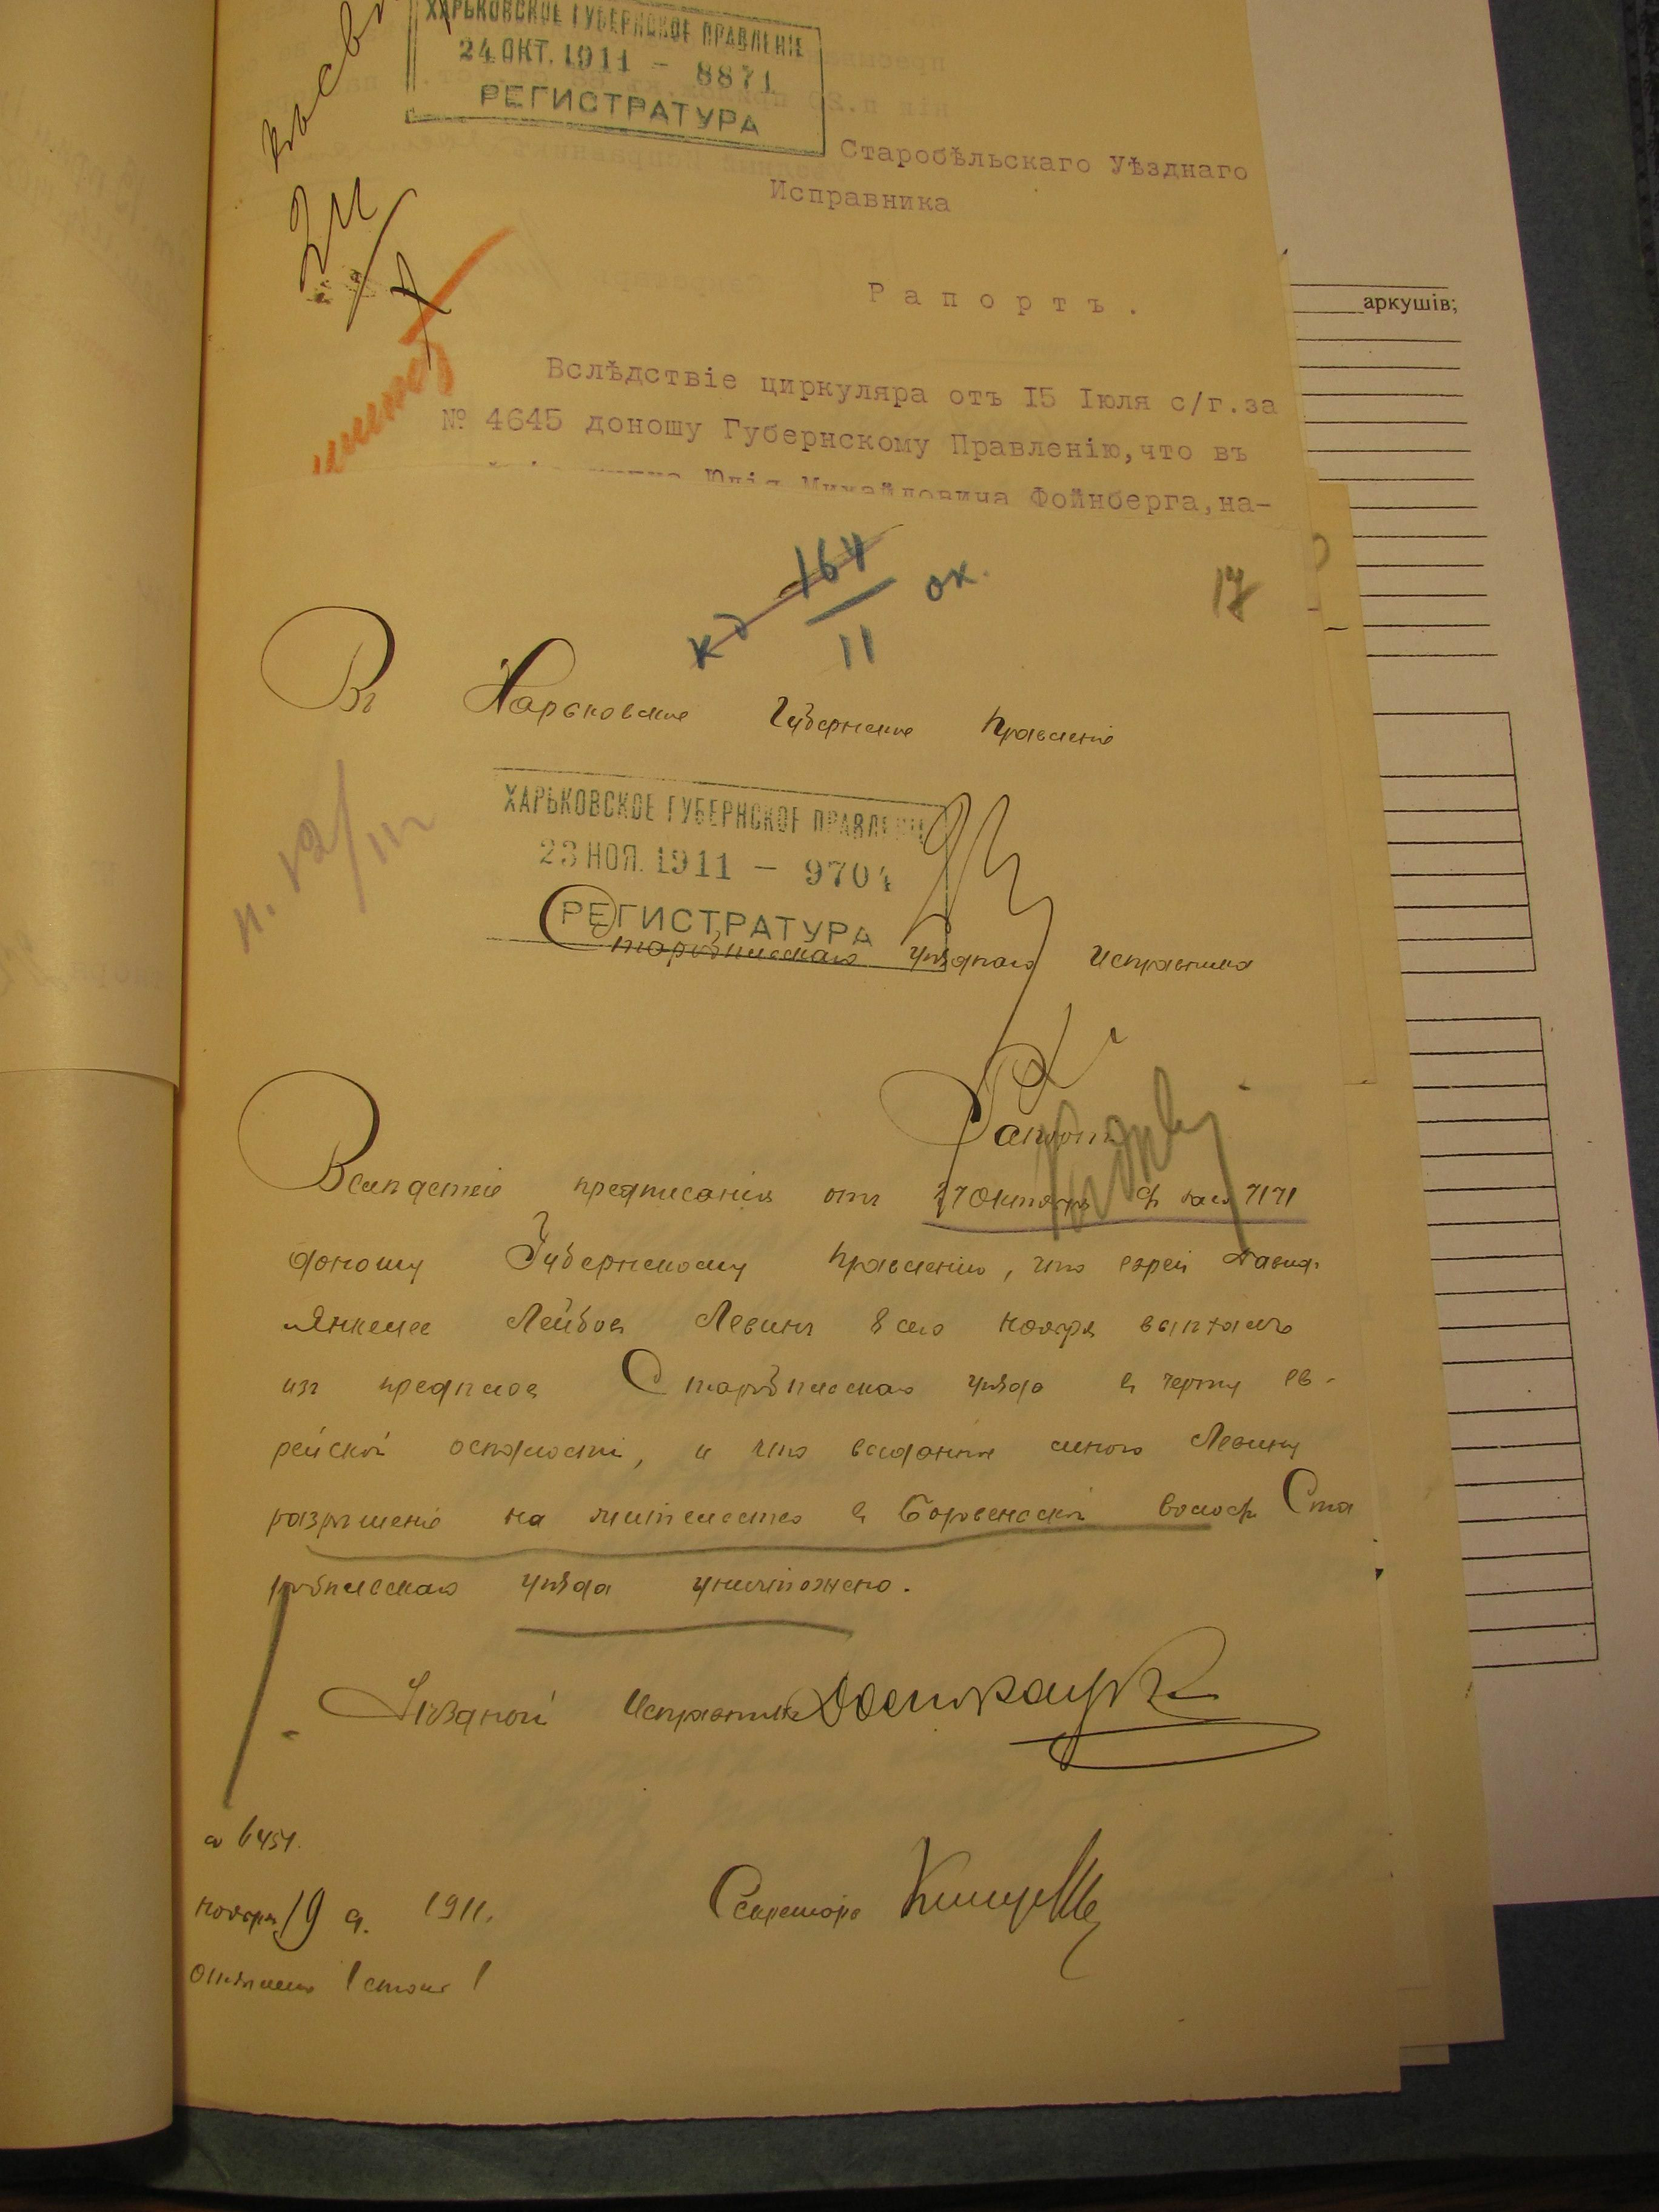 ХАРЬКОВСКОЕ ГУБЕРНСКОЕ ПРАВЛЕНІЕ
24 ОКТ. 1911 - 8871
РЕГИСТРАТУРА
Старобѣльскаго Уѣзднаго
Исправника
Рапортъ.
Вслѣдствіе циркуляра отъ I5 Іюля с/г.за
№ 4645 доношу Губернскому Правленію,что въ
Юлія Михайловича Фойнберга,на-
164
11
17
Въ Харьковское Губернское Правленіе
ХАРЬКОВСКОЕ ГУБЕРНСКОЕ ПРАВЛЕНІЕ
23 НОЯ. 1911 - 9704
РЕГИСТРАТУРА
Старобѣльскаго Уѣзднаго Исправника
Рапортъ
Вслѣдствіе предписанія отъ 27 Октября 7171
доношу Губернскому Правленію, что еврей Давид-
Янкель Лейбовъ Левинъ 8 сего ноября выѣхалъ
изъ предѣловъ Старобѣльскаго уѣзда въ черту ев-
рейской осѣдлости, и что выданное ему Левину
разрѣшеніе на жительство въ волости Ста
робѣльскаго уѣзда уничтожено.
Уѣздный Исправникъ
№ 6451.
Ноября 19 д. 1911.
Секретарь